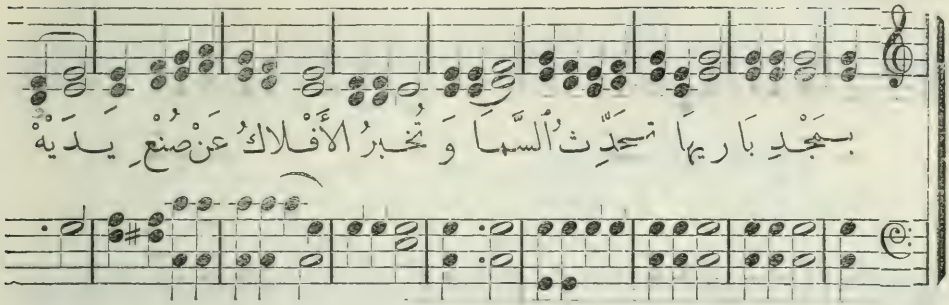 بِمَجْدِ بَارِيهَا تُحَدِّثُ ٱلسَّمَا وَ تُخْبِرُ الأَفْلَاكُ عَنْ صُنْعِ يَدَيْهْ